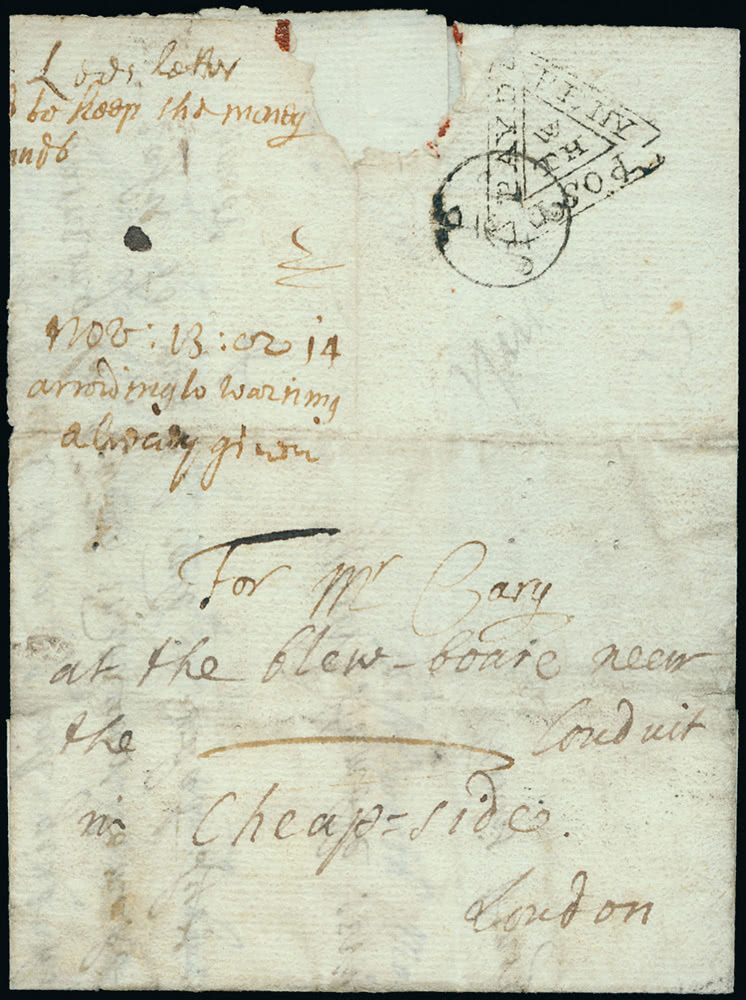 Lords letter
to keep the money
PENNY
POST
PAYD
W
TH
Nov: 13: or 14
according to warning
already given
For Mr Cary
at the blew-boare neer
the Conduit
in Cheap-side.
London